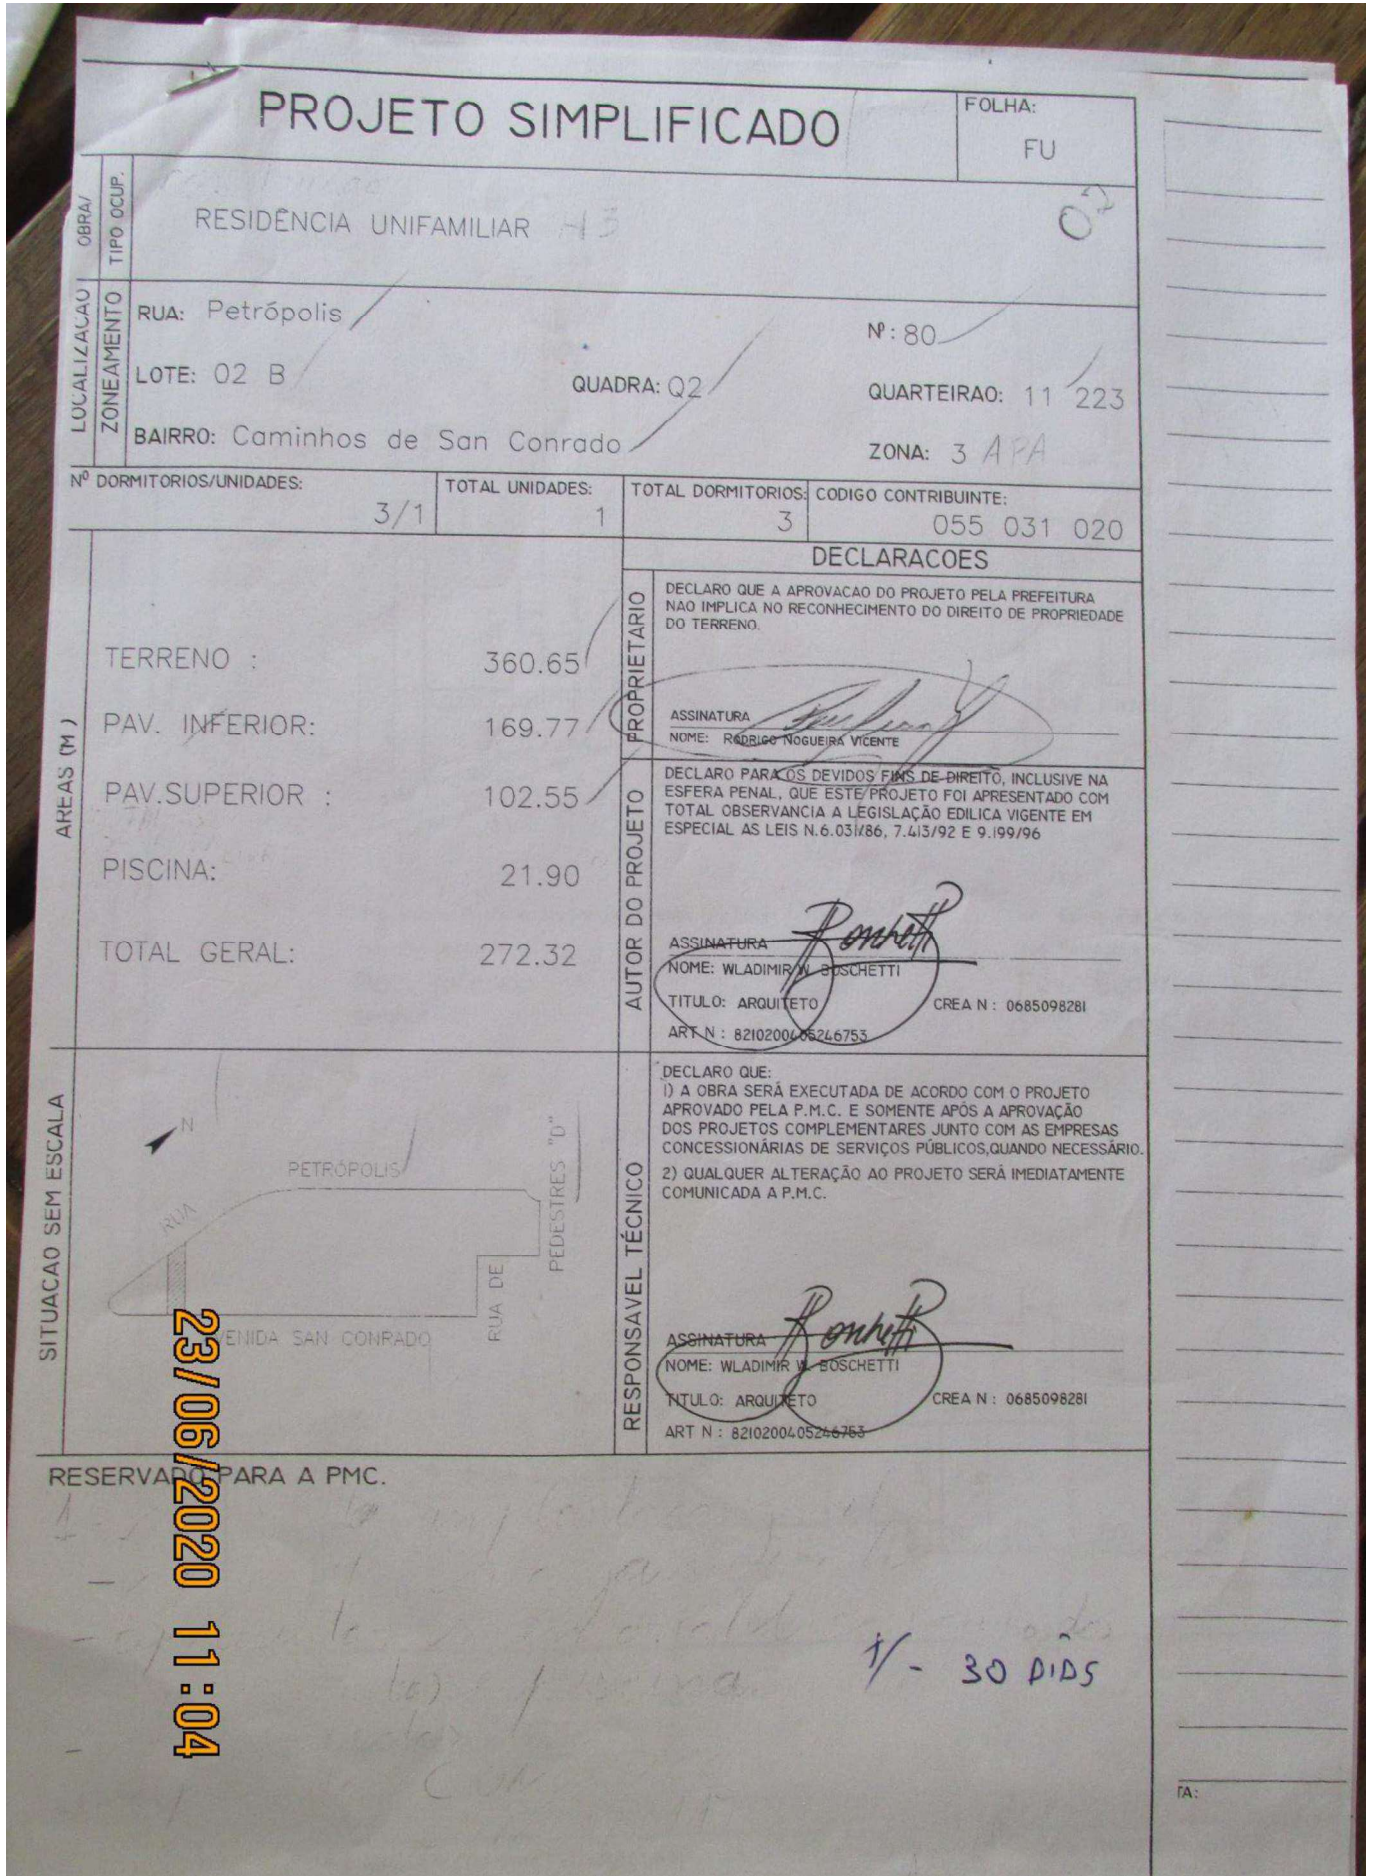 PROJETO SIMPLIFICADO
FOLHA:
FU
OBRA/
TIPO OCUP.
RESIDÊNCIA UNIFAMILIAR H3
02
LOCALIZACAO
ZONEAMENTO
RUA: Petrópolis
Nº: 80
LOTE: 02 B
QUADRA: Q2
QUARTEIRAO: 11 223
BAIRRO: Caminhos de San Conrado
ZONA: 3 APA
Nº DORMITORIOS/UNIDADES:
3/1
TOTAL UNIDADES:
1
TOTAL DORMITORIOS:
3
CODIGO CONTRIBUINTE:
055 031 020
AREAS (M )
TERRENO : 360.65
PAV. INFERIOR: 169.77
PAV.SUPERIOR : 102.55
PISCINA: 21.90
TOTAL GERAL: 272.32
DECLARACOES
PROPRIETARIO
DECLARO QUE A APROVACAO DO PROJETO PELA PREFEITURA
NAO IMPLICA NO RECONHECIMENTO DO DIREITO DE PROPRIEDADE
DO TERRENO.
ASSINATURA
NOME: RODRIGO NOGUEIRA VICENTE
AUTOR DO PROJETO
DECLARO PARA OS DEVIDOS FINS DE DIREITO, INCLUSIVE NA
ESFERA PENAL, QUE ESTE PROJETO FOI APRESENTADO COM
TOTAL OBSERVANCIA A LEGISLAÇÃO EDILICA VIGENTE EM
ESPECIAL AS LEIS N.6.031/86, 7.413/92 E 9.199/96
ASSINATURA
NOME: WLADIMIR W. BOSCHETTI
TITULO: ARQUITETO
CREA N : 0685098281
ART N : 8210200405246753
SITUACAO SEM ESCALA
N
PETRÓPOLIS
RUA
PEDESTRES "D"
RUA DE
VENIDA SAN CONRADO
RESPONSAVEL TÉCNICO
DECLARO QUE:
1) A OBRA SERÁ EXECUTADA DE ACORDO COM O PROJETO
APROVADO PELA P.M.C. E SOMENTE APÓS A APROVAÇÃO
DOS PROJETOS COMPLEMENTARES JUNTO COM AS EMPRESAS
CONCESSIONÁRIAS DE SERVIÇOS PÚBLICOS,QUANDO NECESSÁRIO.
2) QUALQUER ALTERAÇÃO AO PROJETO SERÁ IMEDIATAMENTE
COMUNICADA A P.M.C.
ASSINATURA
NOME: WLADIMIR W. BOSCHETTI
TITULO: ARQUITETO
CREA N : 0685098281
ART N : 8210200405246753
RESERVADO PARA A PMC.
+/- 30 DIAS
TA:
23/06/2020 11:04